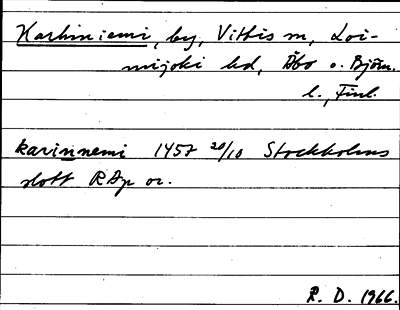 Karhiniemi, by, Vittis sn, Loi-
mijoki hd, Åbo o. Björn.
l., Finl.
karinnemi 1457 20/10 Stockholms
slott RAp or.
R. D. 1966.